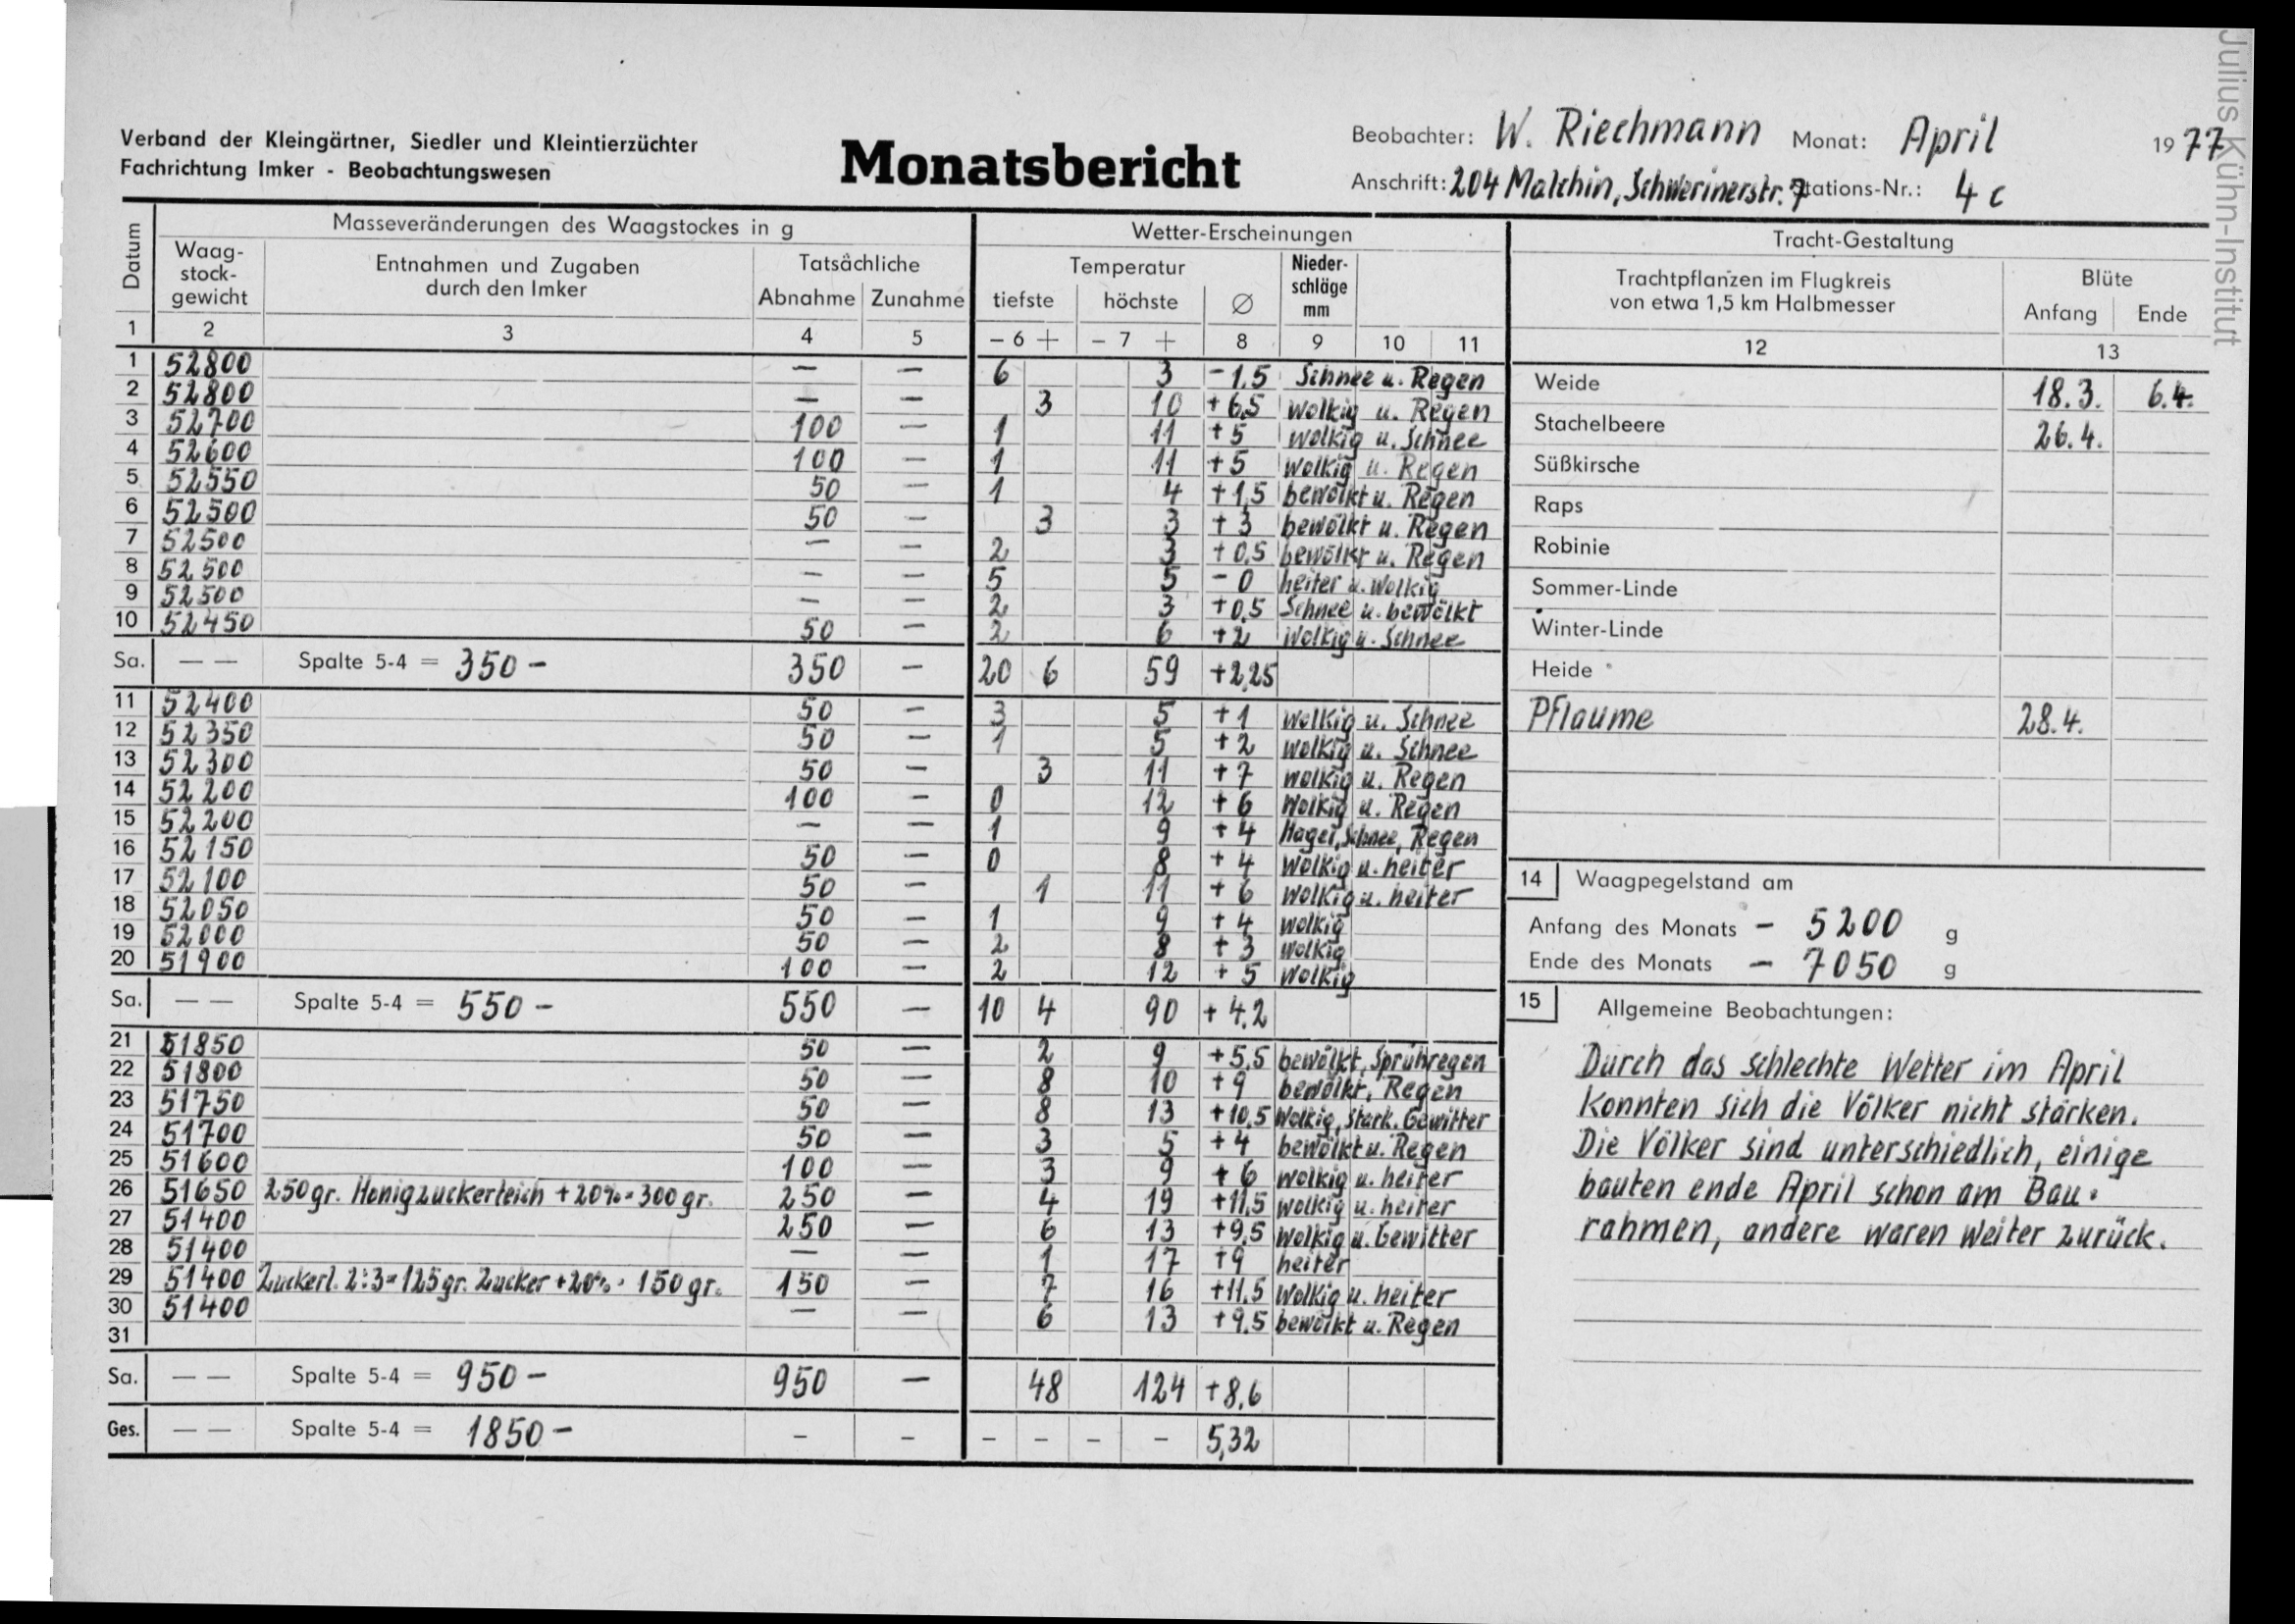 Verband der Kleingärtner, Siedler und Kleintierzüchter
Fachrichtung Imker - Beobachtungswesen
Monatsbericht
Beobachter: W. Riechmann Monat: April 1977
Anschrift: 204 Malchin, Schwerinerstr. 7 Stations-Nr.: 4c
Julius Kühn-Institut
Masseveränderungen des Waagstockes in g Wetter-Erscheinungen Tracht-Gestaltung
Datum Waag-stock-gewicht Entnahmen und Zugaben durch den Imker Tatsächliche Abnahme Zunahme Temperatur tiefste höchste Ø Nieder-schläge mm
1 2 3 4 5 – 6 + – 7 + 8 9 10 11
1 52800 – – 6 3 -1,5 Schnee u. Regen
2 52800 – – 3 10 +6,5 wolkig u. Regen
3 52700 100 – 1 11 +5 wolkig u. Schnee
4 52600 100 – 1 11 +5 wolkig u. Regen
5 52550 50 – 1 4 +1,5 bewölkt u. Regen
6 52500 50 – 3 3 +3 bewölkt u. Regen
7 52500 – – 2 3 +0,5 bewölkt u. Regen
8 52500 – – 5 5 -0 heiter u. wolkig
9 52500 – – 2 3 +0,5 Schnee u. bewölkt
10 52450 50 – 2 6 +2 Wolkig u. Schnee
Sa. — — Spalte 5-4 = 350 - 350 – 20 6 59 +2,25
11 52400 50 – 3 5 +1 wolkig u. Schnee
12 52350 50 – 1 5 +2 wolkig u. Schnee
13 52300 50 – 3 11 +7 wolkig u. Regen
14 52200 100 – 0 12 +6 Wolkig u. Regen
15 52200 – – 1 9 +4 Hagel, Schnee, Regen
16 52150 50 – 0 8 +4 wolkig u. heiter
17 52100 50 – 1 11 +6 wolkig u. heiter
18 52050 50 – 1 9 +4 wolkig
19 52000 50 – 2 8 +3 wolkig
20 51900 100 – 2 12 +5 wolkig
Sa. — — Spalte 5-4 = 550 - 550 – 10 4 90 +4,2
21 51850 50 – 2 9 +5,5 bewölkt, Sprühregen
22 51800 50 – 8 10 +9 bewölkt, Regen
23 51750 50 – 8 13 +10,5 Wolkig, stark. Gewitter
24 51700 50 – 3 5 +4 bewölkt u. Regen
25 51600 100 – 3 9 +6 wolkig u. heiter
26 51650 250 gr. Honigzuckerteich + 20% = 300 gr. 250 – 4 19 +11,5 wolkig u. heiter
27 51400 250 – 6 13 +9,5 wolkig u. Gewitter
28 51400 – – 1 17 +9 heiter
29 51400 Zuckerl. 2:3 = 125 gr. Zucker + 20% = 150 gr. 150 – 7 16 +11,5 Wolkig u. heiter
30 51400 – – 6 13 +9,5 bewölkt u. Regen
31
Sa. — — Spalte 5-4 = 950 - 950 – 48 124 +8,6
Ges. — — Spalte 5-4 = 1850 - – – – – – – 5,32
Trachtpflanzen im Flugkreis von etwa 1,5 km Halbmesser Blüte Anfang Ende
12 13
Weide 18.3. 6.4.
Stachelbeere 26.4.
Süßkirsche
Raps
Robinie
Sommer-Linde
Winter-Linde
Heide
Pflaume 28.4.
14 Waagpegelstand am
Anfang des Monats – 5200 g
Ende des Monats – 7050 g
15 Allgemeine Beobachtungen:
Durch das schlechte Wetter im April
konnten sich die Völker nicht stärken.
Die Völker sind unterschiedlich, einige
bauten ende April schon am Bau-
rahmen, andere waren weiter zurück.